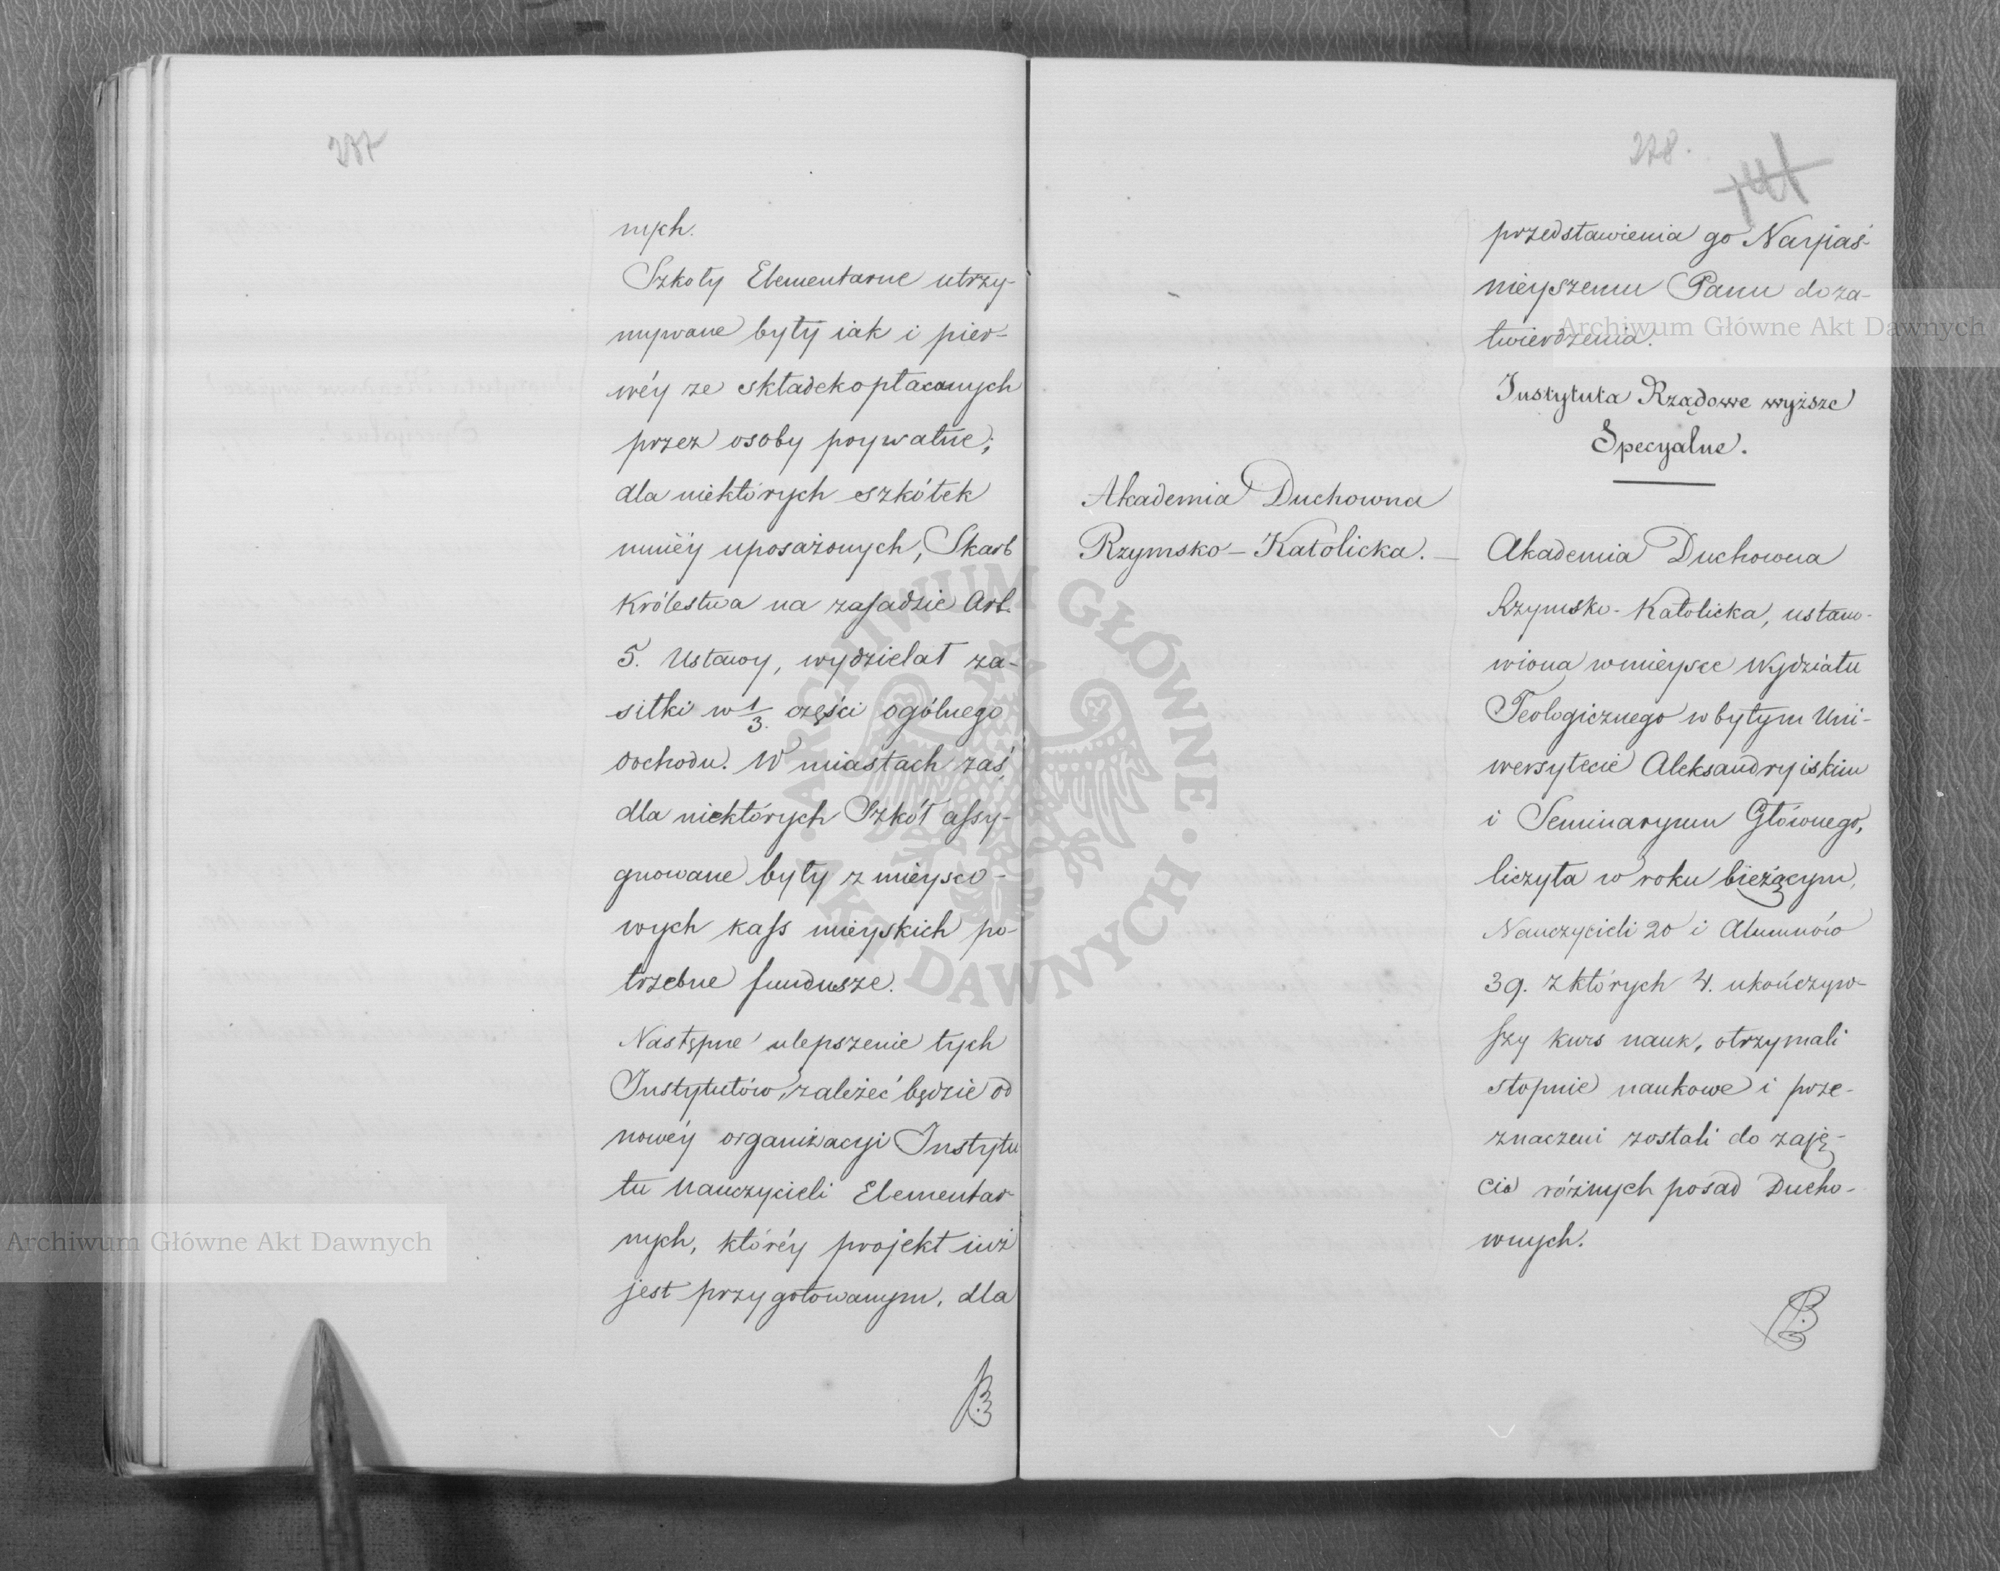 277
nych.
Szkoły Elementarne utrzy-
mywane były iak i pier-
wéy ze składek opłacanych
przez osoby prywatne;
dla niektórych szkółek
mniéy uposażonych, Skarb
Królestwa na zasadzie Art.
5. Ustawy, wydzielał za-
siłki w 1/3. części ogólnego
dochodu. W miastach zaś,
dla niektórych Szkół assy-
gnowane były z mieysco-
wych kass mieyskich po-
trzebne fundusze.
Następne ulepszenie tych
Instytutów, zależéć będzie od
nowéy organizacyi Instytu
tu Nauczycieli Elementar-
nych, któréy projekt iuż
jest przygotowanym, dla
278.
przedstawienia go Nayjaś-
nieyszemu Panu do za-
twierdzenia.
Instytuta Rządowe wyższe
Specyalne.
Akademia Duchowna
Rzymsko-Katolicka.
Akademia Duchowna
Rzymsko-Katolicka, ustano-
wiona w mieysce Wydziału
Teologicznego w byłym Uni-
wersytecie Aleksandryiskim
i Seminaryum Głównego,
liczyła w roku bieżącym,
Nauczycieli 20 i Alumnów
39. z których 4. ukończyw-
szy kurs nauk, otrzymali
stopnie naukowe i prze-
znaczeni zostali do zaję-
cia różnych posad Ducho-
wnych.
Archiwum Główne Akt Dawnych
Archiwum Główne Akt Dawnych
ARCHIWUM GŁÓWNE AKT DAWNYCH